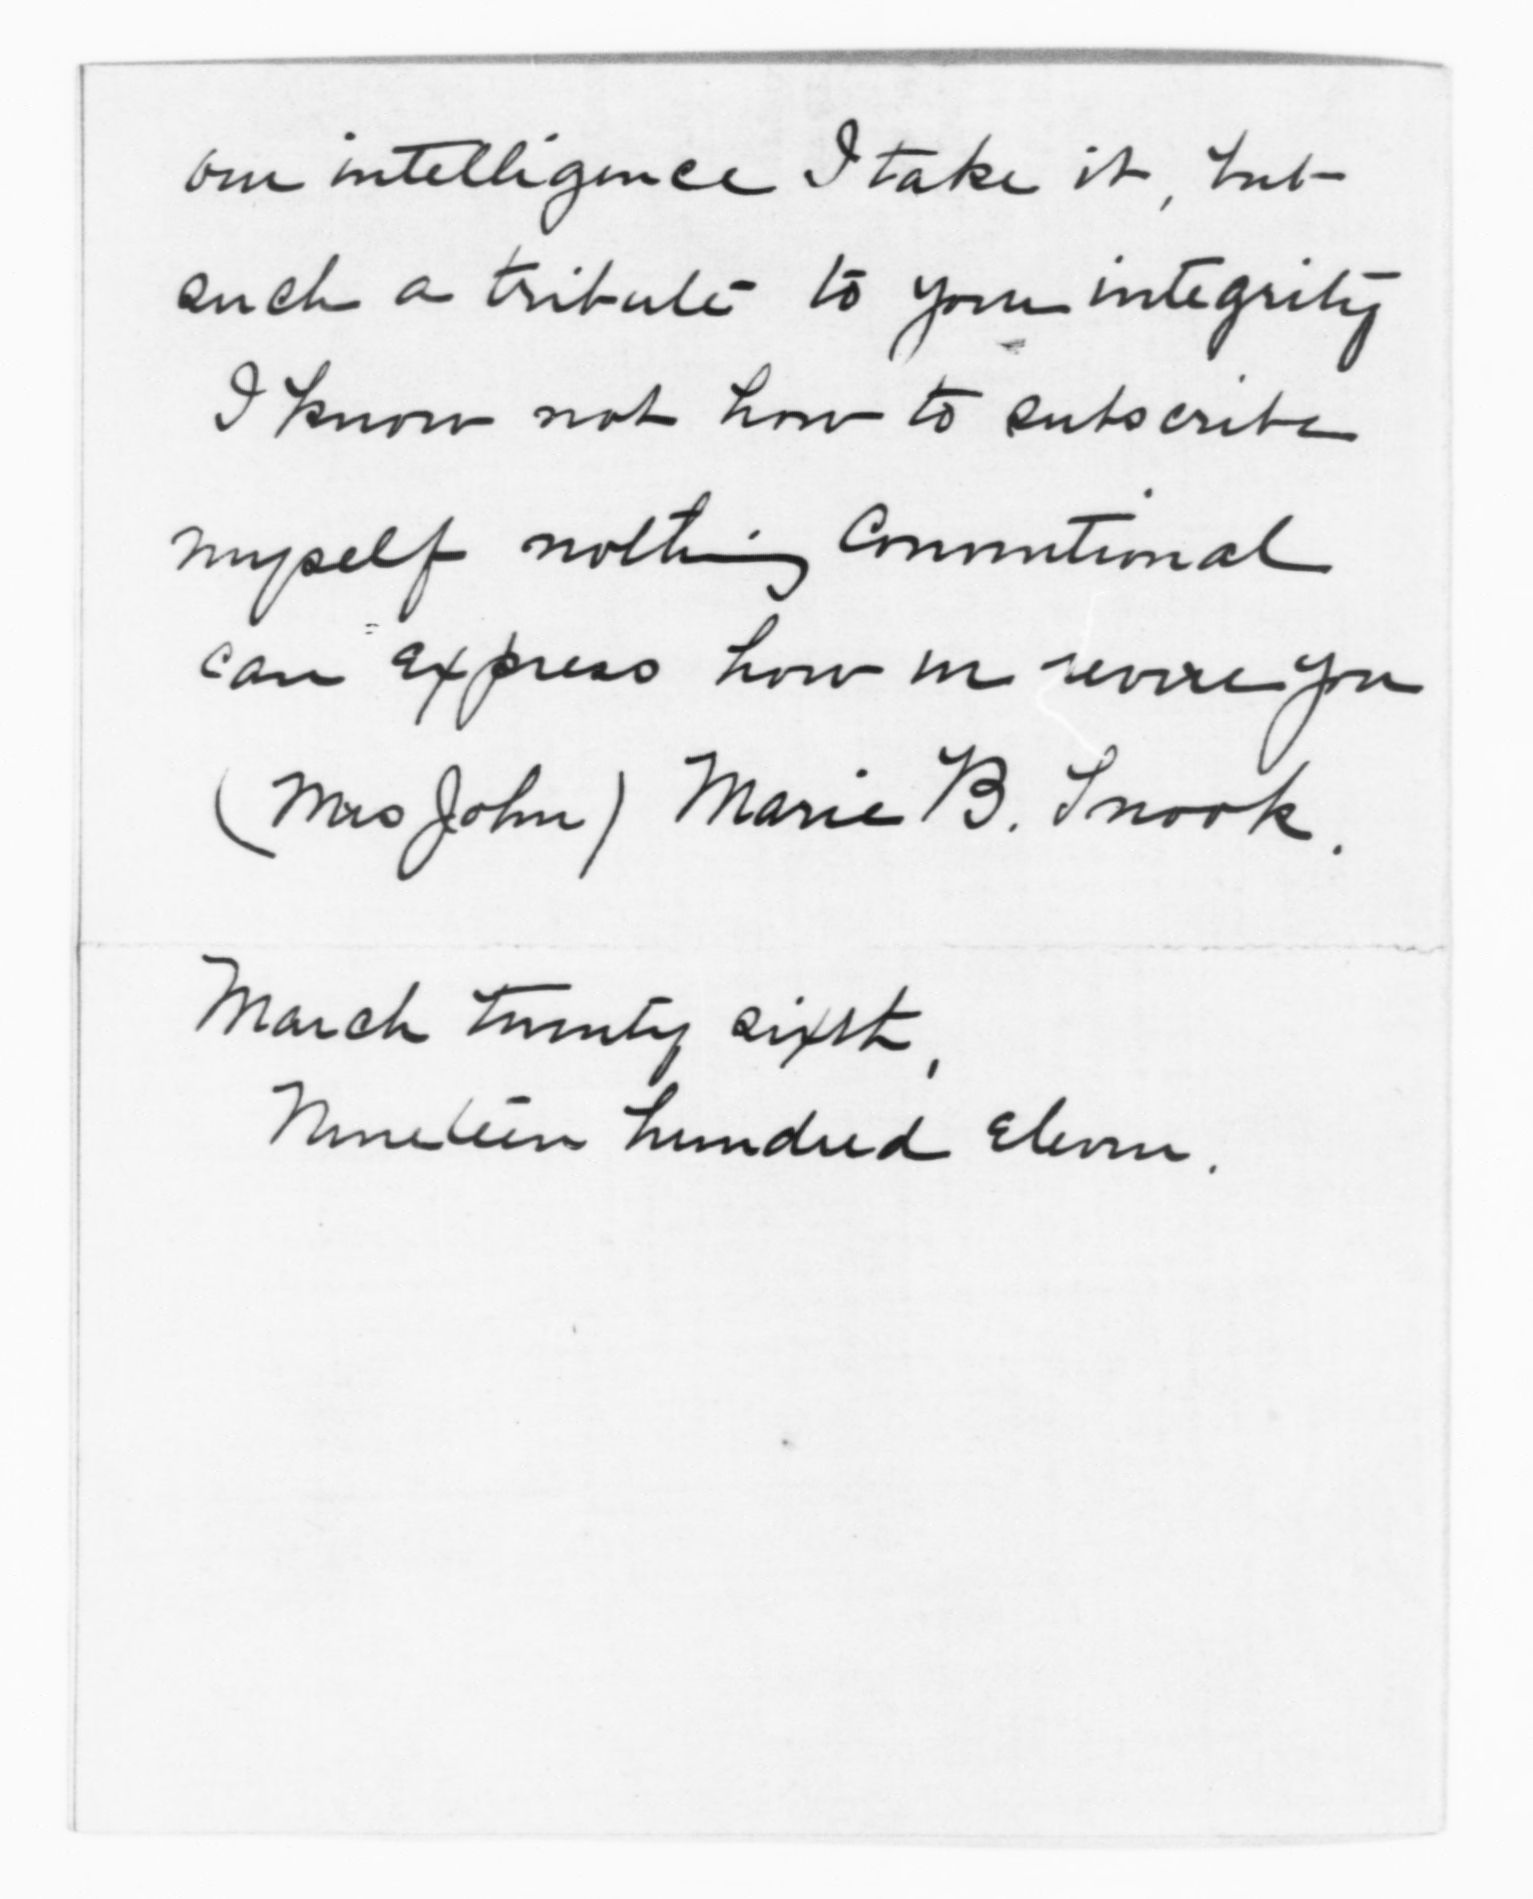 our intelligence I take it, but
such a tribute to your integrity
I know not how to subscribe
myself nothing Conventional
can express how we revere you
(Mrs John) Marie B. Snook.
March twenty sixth,
Nineteen hundred eleven.